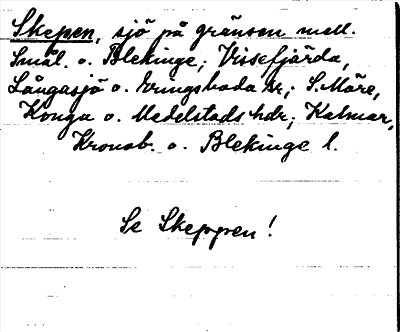 Skepen, sjö på gränsen mell.
Smål. o. Blekinge; Vissefjärda,
Långasjö o. Eringsboda sn; S. Möre,
Konga o. Medelstads hdr; Kalmar,
Kronob. o. Blekinge l.
Se Skeppen!